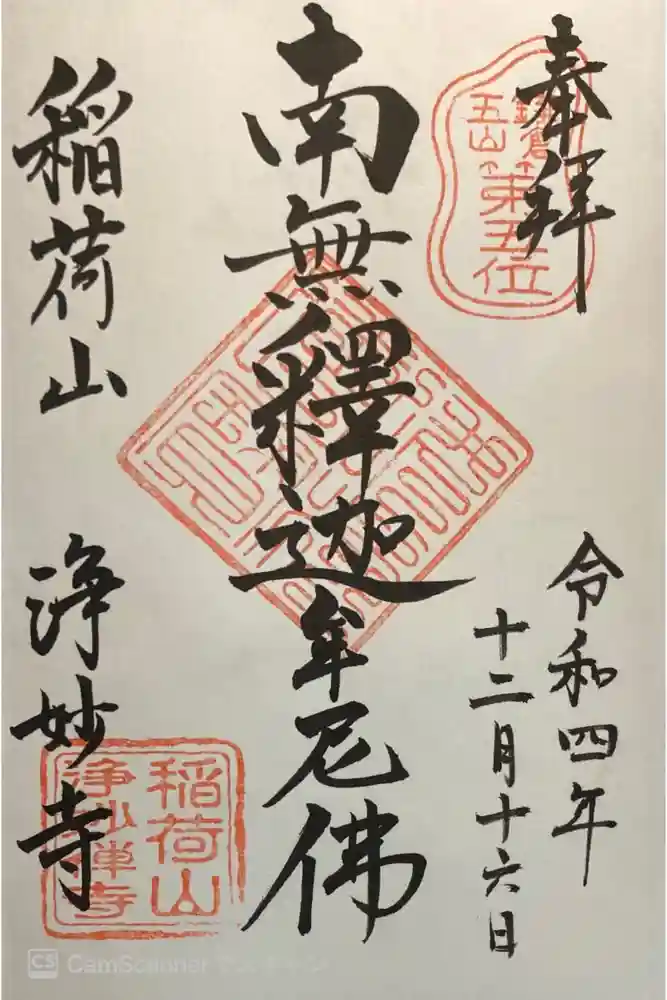 奉拝
鎌倉
五山
第五位
令和四年
十二月十六日
南無釋迦牟尼佛
稲荷山 浄妙寺
稲荷山
浄妙禅寺
CS CamScanner でスキャン